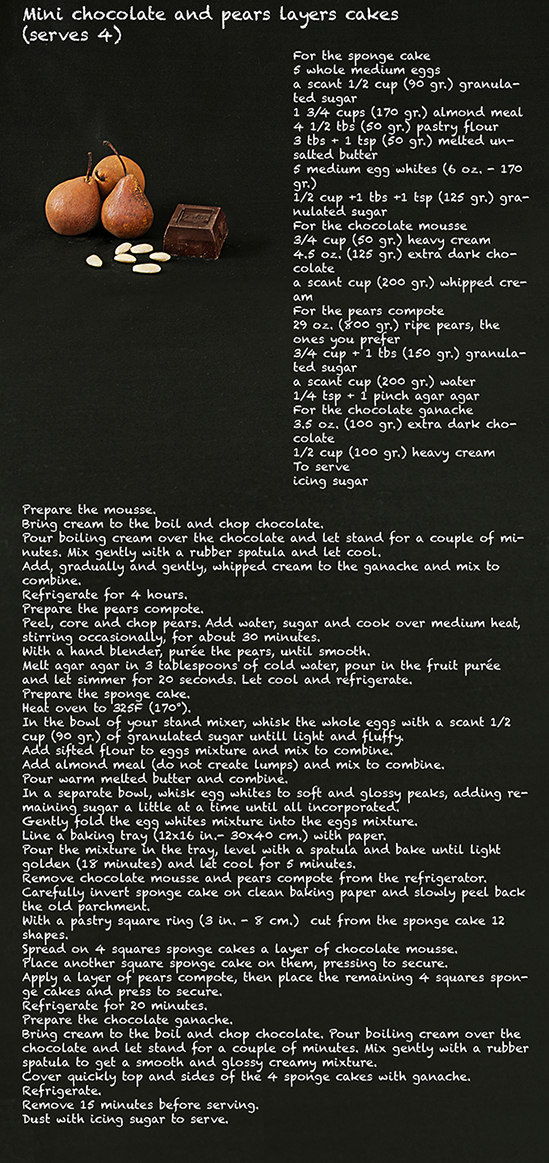 Mini chocolate and pears layers cakes
(serves 4)
For the sponge cake
5 whole medium eggs
a scant 1/2 cup (90 gr.) granula-
ted sugar
1 3/4 cups (170 gr.) almond meal
4 1/2 tbs (50 gr.) pastry flour
3 tbs + 1 tsp (50 gr.) melted un-
salted butter
5 medium egg whites (6 oz. - 170
gr.)
1/2 cup +1 tbs +1 tsp (125 gr.) gra-
nulated sugar
For the chocolate mousse
3/4 cup (50 gr.) heavy cream
4.5 oz. (125 gr.) extra dark cho-
colate
a scant cup (200 gr.) whipped cre-
am
For the pears compote
29 oz. (800 gr.) ripe pears, the
ones you prefer
3/4 cup + 1 tbs (150 gr.) granula-
ted sugar
a scant cup (200 gr.) water
1/4 tsp + 1 pinch agar agar
For the chocolate ganache
3.5 oz. (100 gr.) extra dark cho-
colate
1/2 cup (100 gr.) heavy cream
To serve
icing sugar
Prepare the mousse.
Bring cream to the boil and chop chocolate.
Pour boiling cream over the chocolate and let stand for a couple of mi-
nutes. Mix gently with a rubber spatula and let cool.
Add, gradually and gently, whipped cream to the ganache and mix to
combine.
Refrigerate for 4 hours.
Prepare the pears compote.
Peel, core and chop pears. Add water, sugar and cook over medium heat,
stirring occasionally, for about 30 minutes.
With a hand blender, purée the pears, until smooth.
Melt agar agar in 3 tablespoons of cold water, pour in the fruit purée
and let simmer for 20 seconds. Let cool and refrigerate.
Prepare the sponge cake.
Heat oven to 325F (170°).
In the bowl of your stand mixer, whisk the whole eggs with a scant 1/2
cup (90 gr.) of granulated sugar untill light and fluffy.
Add sifted flour to eggs mixture and mix to combine.
Add almond meal (do not create lumps) and mix to combine.
Pour warm melted butter and combine.
In a separate bowl, whisk egg whites to soft and glossy peaks, adding re-
maining sugar a little at a time until all incorporated.
Gently fold the egg whites mixture into the eggs mixture.
Line a baking tray (12x16 in.- 30x40 cm.) with paper.
Pour the mixture in the tray, level with a spatula and bake until light
golden (18 minutes) and let cool for 5 minutes.
Remove chocolate mousse and pears compote from the refrigerator.
Carefully invert sponge cake on clean baking paper and slowly peel back
the old parchment.
With a pastry square ring (3 in. - 8 cm.) cut from the sponge cake 12
shapes.
Spread on 4 squares sponge cakes a layer of chocolate mousse.
Place another square sponge cake on them, pressing to secure.
Apply a layer of pears compote, then place the remaining 4 squares spon-
ge cakes and press to secure.
Refrigerate for 20 minutes.
Prepare the chocolate ganache.
Bring cream to the boil and chop chocolate. Pour boiling cream over the
chocolate and let stand for a couple of minutes. Mix gently with a rubber
spatula to get a smooth and glossy creamy mixture.
Cover quickly top and sides of the 4 sponge cakes with ganache.
Refrigerate.
Remove 15 minutes before serving.
Dust with icing sugar to serve.